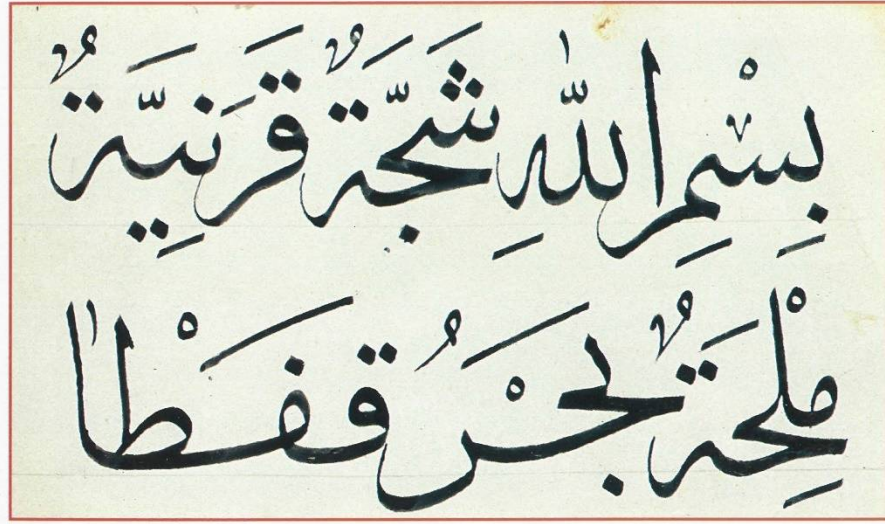 بِسْمِ اللّٰهِ شَجَّةٌ قَرَنِيَّةٌ
مِلْحَةٌ بَحْرُ قفَطْا